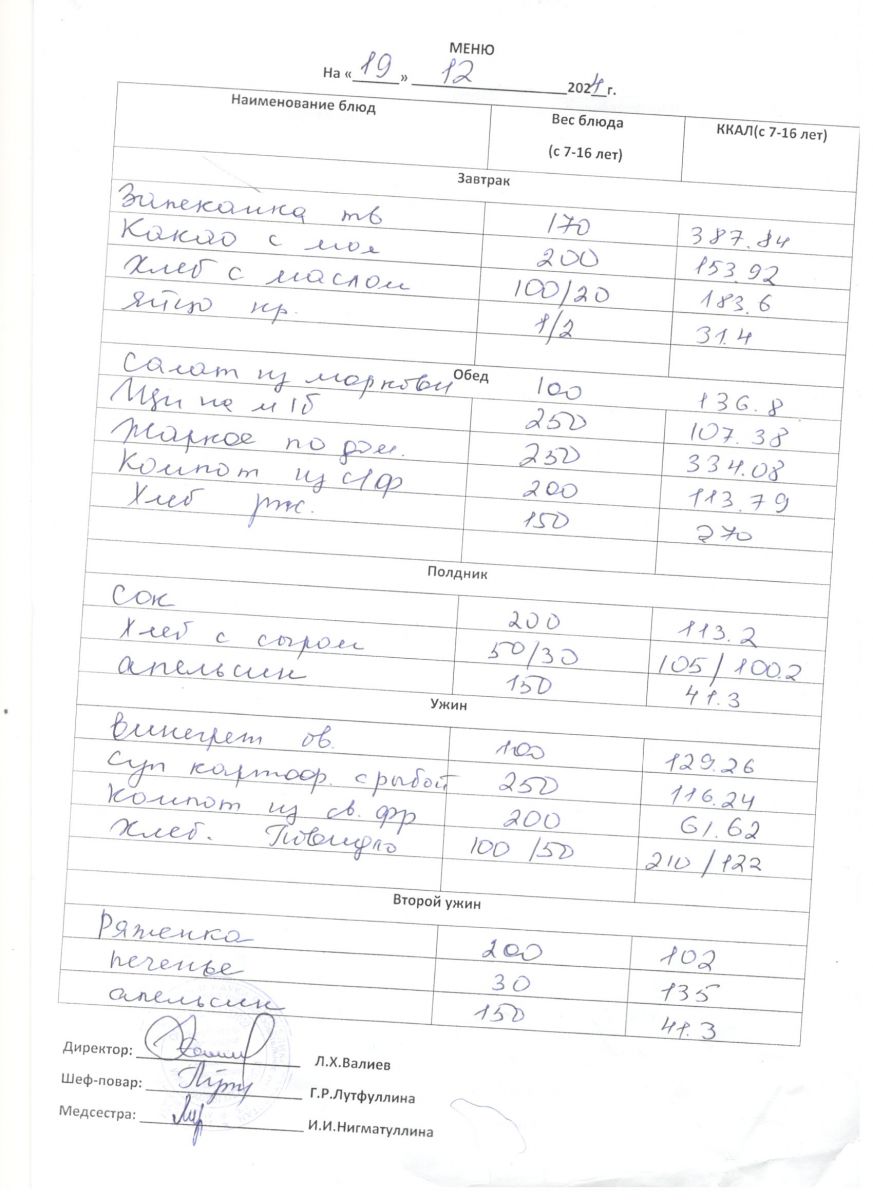 МЕНЮ
На «19» 12 2024 г.
Наименование блюд Вес блюда (с 7-16 лет) ККАЛ(с 7-16 лет)
Завтрак
Запеканка тв 170 387.84
Какао с мол 200 153.92
Хлеб с маслом 100/20 183.6
яйцо кр. 1/2 31.4
Обед
Салат из моркови 100 136.8
Щи на м/б 250 107.38
Жаркое по дом. 250 334.08
Компот из с/ф 200 113.79
Хлеб рж. 150 270
Полдник
Сок 200 113.2
Хлеб с сыром 50/30 105/100.2
апельсин 150 41.3
Ужин
Винегрет ов. 100 129.26
Суп картоф. с рыбой 250 116.24
Компот из св. фр 200 61.62
Хлеб. Повидло 100/50 210/122
Второй ужин
Ряженка 200 102
печенье 30 135
апельсин 150 41.3
Директор: Л.Х.Валиев
Шеф-повар: Г.Р.Лутфуллина
Медсестра: И.И.Нигматуллина